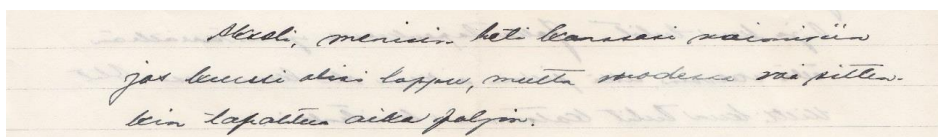 Akseli, menisin heti kanssasi naimisiin
jos kurssi olisi loppu, mutta vuodessa voi sitten-
kin tapahtua aika paljon.